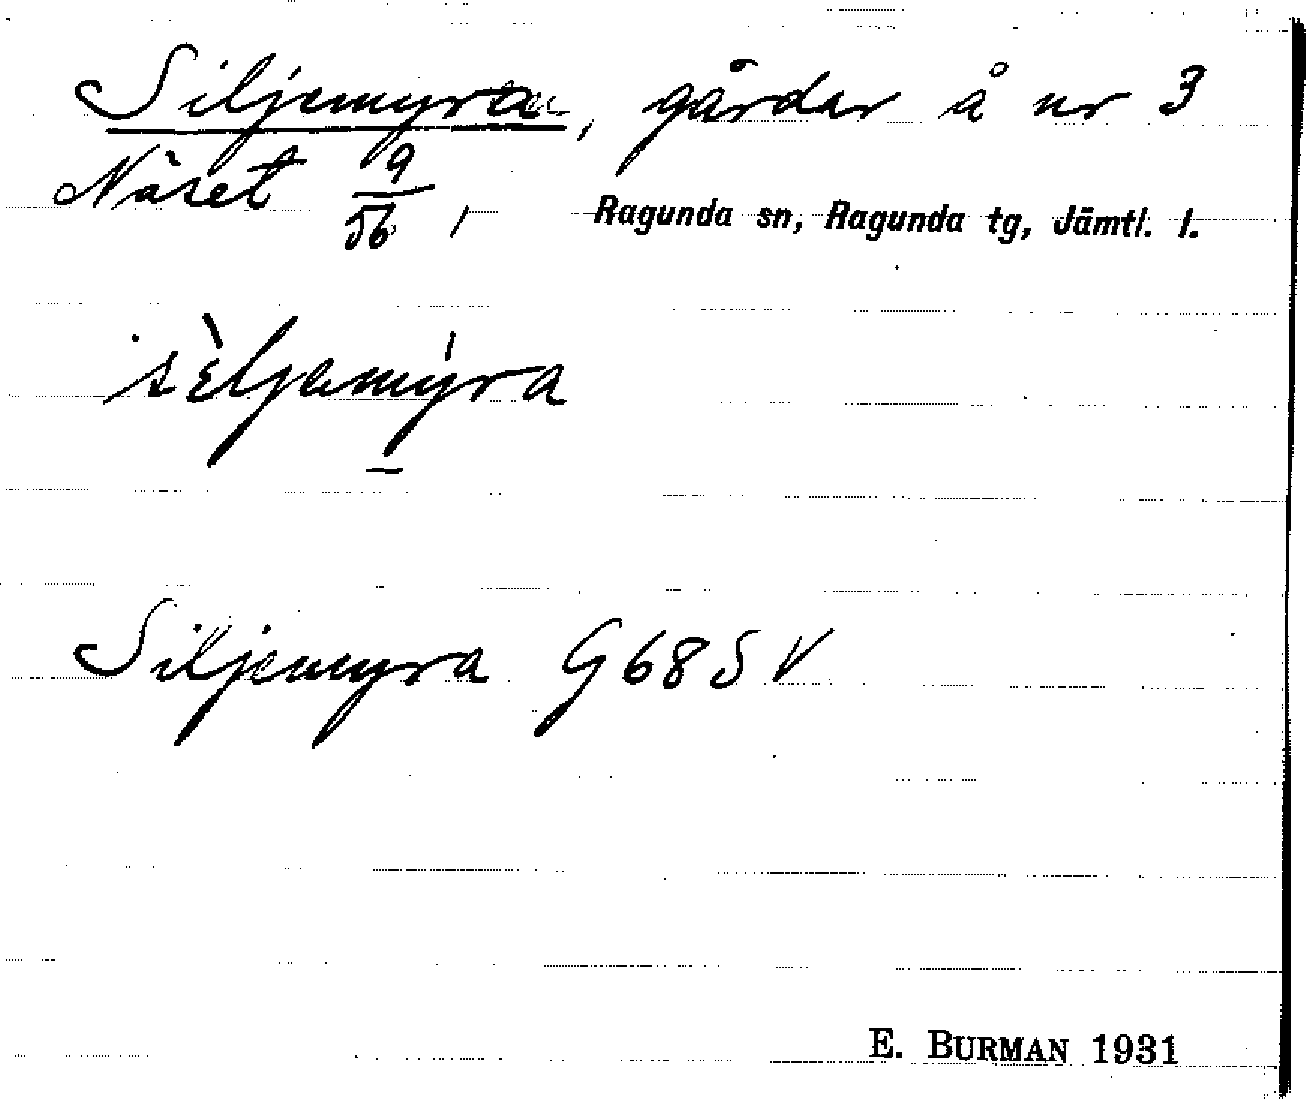 Siljemyran, gårdar å nr 3
Näset 9/56, Ragunda sn, Ragunda tg, Jämtl. l.
sὲljemýra
Siljemyra G 68 S V
E. BURMAN 1931